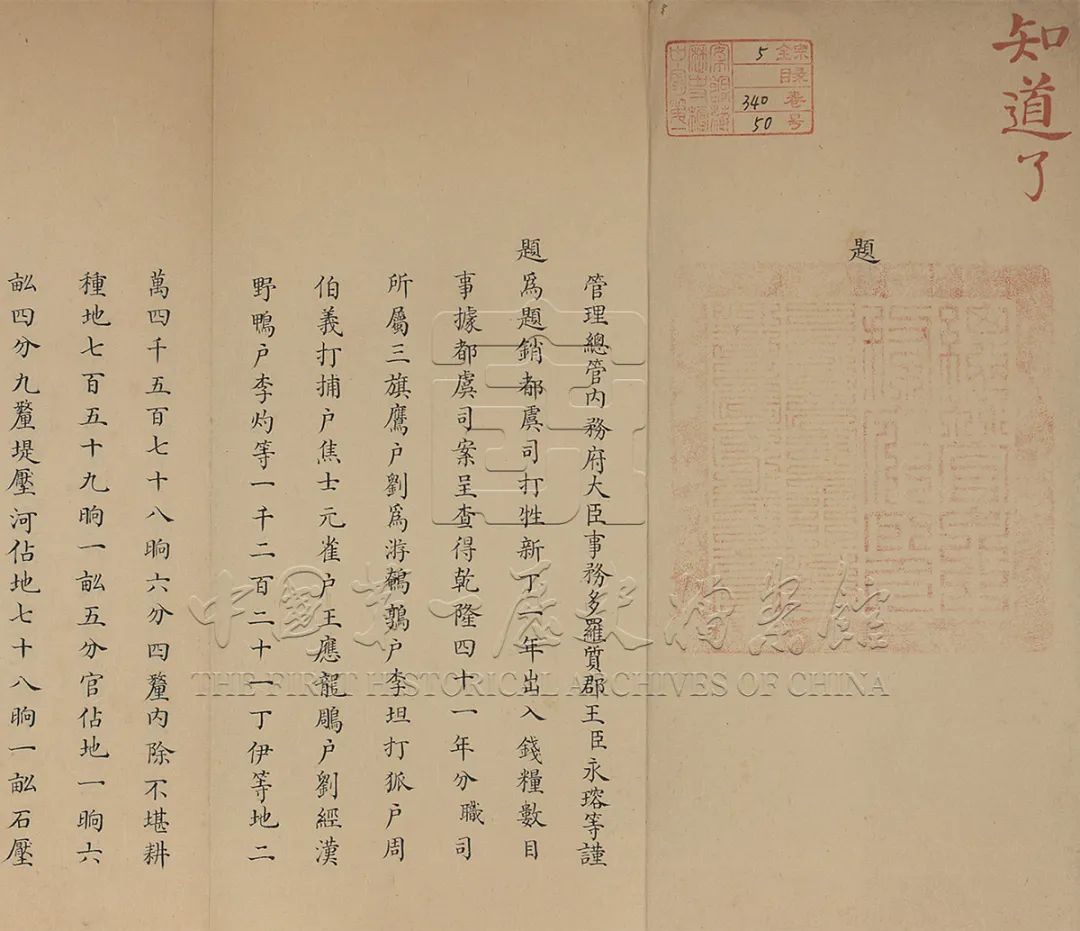 知道了
全宗 5
目录
卷 340
号 50
題
管理總管内務府大臣事務多羅質郡王臣永瑢等謹
題為題銷都虞司打牲新丁一年出入錢糧數目
事據都虞司案呈查得乾隆四十一年分職司
所屬三旗鷹户劉為游鵪鶉户李坦打狐户周
伯義打捕户焦士元雀户王應龍鵰户劉經漢
野鴨户李灼等一千二百二十一丁伊等地二
萬四千五百七十八晌六分四釐内除不堪耕
種地七百五十九晌一畝五分官佔地一晌六
畝四分九釐堤壓河佔地七十八晌一畝石壓
中國第一歷史檔案館
THE FIRST HISTORICAL ARCHIVES OF CHINA